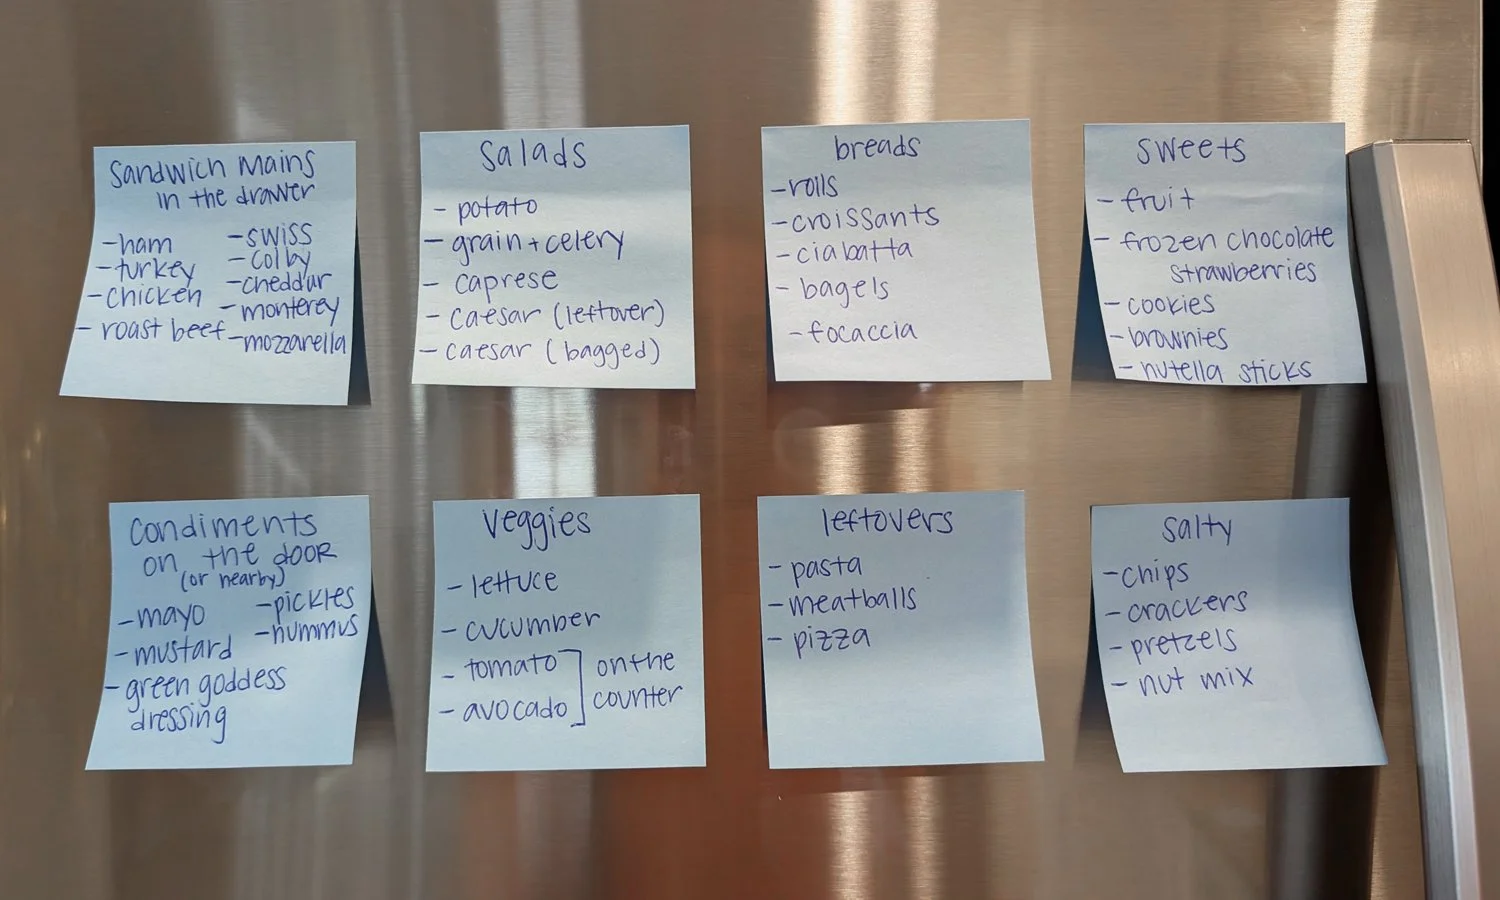 Sandwich Mains
in the drawer
- ham
- turkey
- chicken
- roast beef
- swiss
- colby
- cheddar
- monterey
- mozzarella
Salads
- potato
- grain + celery
- caprese
- caesar (leftover)
- caesar (bagged)
breads
- rolls
- croissants
- ciabatta
- bagels
- focaccia
sweets
- fruit
- frozen chocolate
strawberries
- cookies
- brownies
- nutella sticks
Condiments
on the door
(or nearby)
- mayo
- mustard
- green goddess
dressing
- pickles
- hummus
Veggies
- lettuce
- cucumber
- tomato
- avocado
on the
counter
leftovers
- pasta
- meatballs
- pizza
salty
- chips
- crackers
- pretzels
- nut mix